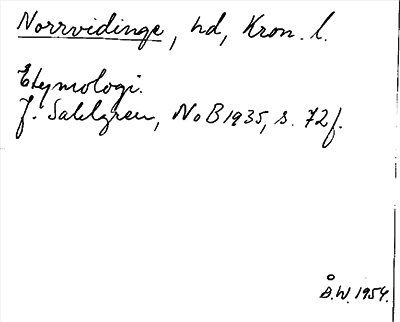 Norrvidinge, hd, Kron. l.
Etymologi.
J. Sahlgren, NoB 1935, s. 72f.
Å.W. 1954.